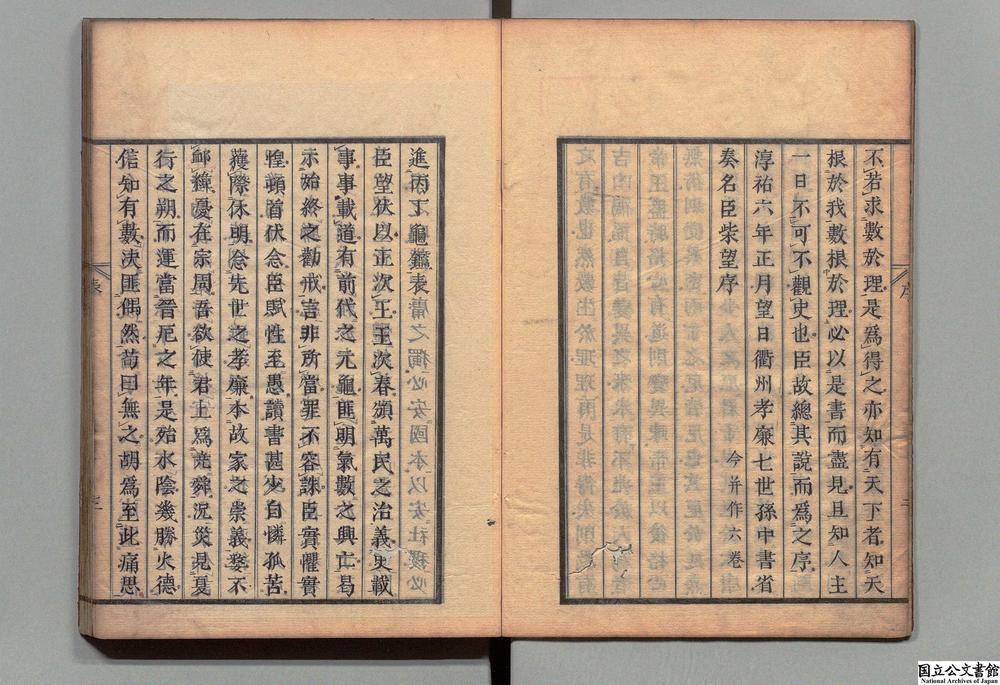 不若求數於理是爲得之亦知有天下者知天
根於我數根於理必以是書而盡見且知人主
一日不可不觀史也臣故總其說而爲之序
淳祐六年正月望日衢州孝廉七世孫中書省
奏名臣柴望序 今并作六卷
序
二
進丙丁龜鑑表
臣望伏以正次王王次春頒萬民之治義史載
事事載道有前代之元龜匪明氣數之興亡曷
示始終之勸戒言非所當罪不容誅臣實懼實
惶頓首伏念臣賦性至愚讀書甚少自憐孤苦
獲際休明念先世之孝廉本故家之崇義嫠不
恤緯憂在宗周吾欲使君上爲堯舜況災見夏
行之朔而運當晉厄之年是殆水陰幾勝火德
信知有數決匪偶然苟曰無之胡爲至此痛思
表
三
国立公文書館
National Archives of Japan